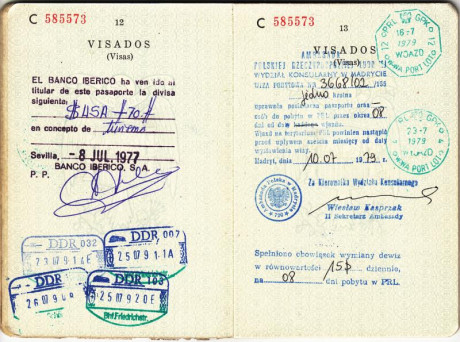 C 585573
12
VISADOS
(Visas)
EL BANCO IBERICO ha ven ido al
titular de este pasaporte la divisa
siguiente: $USA #70=#
en concepto de turismo
Sevilla, - 8 JUL. 1977
BANCO IBERICO, S.A.
P. P.
DDR 032
DDR 007
DDR
DDR 103
Bhf. Friedrichstr.
C 585573
13
VISADOS
(Visas)
AMBASADA
POLSKIEJ RZECZYPOSPOLITEJ LUDOWEJ
WYDZIAŁ KONSULARNY W MADRYCIE
WIZA POBYTOWA Nº 3668/02
jedno krotna
uprawnia posiadacza paszportu oraz
osób do pobytu w PRL przez okres 08
dni od daty
Wjazd na terytorium PRL powinien nastąpić
przed upływem miesięcy od daty
wystawienia wizy.
Madryt, 10.07. 1979 r.
Za Kierownika Wydziału Konsularnego
Wiesław Kasprzak
II Sekretarz Ambasady
Spełniono obowiązek wymiany dewiz
w równowartości 15$ dziennie,
na 08 dni pobytu w PRL.
12 PRL GPK 12
16-7
1979
WJAZD
W-WA PORT LOTN
PRL GPK
23-7
1979
WYJAZD
W-WA PORT LOTN